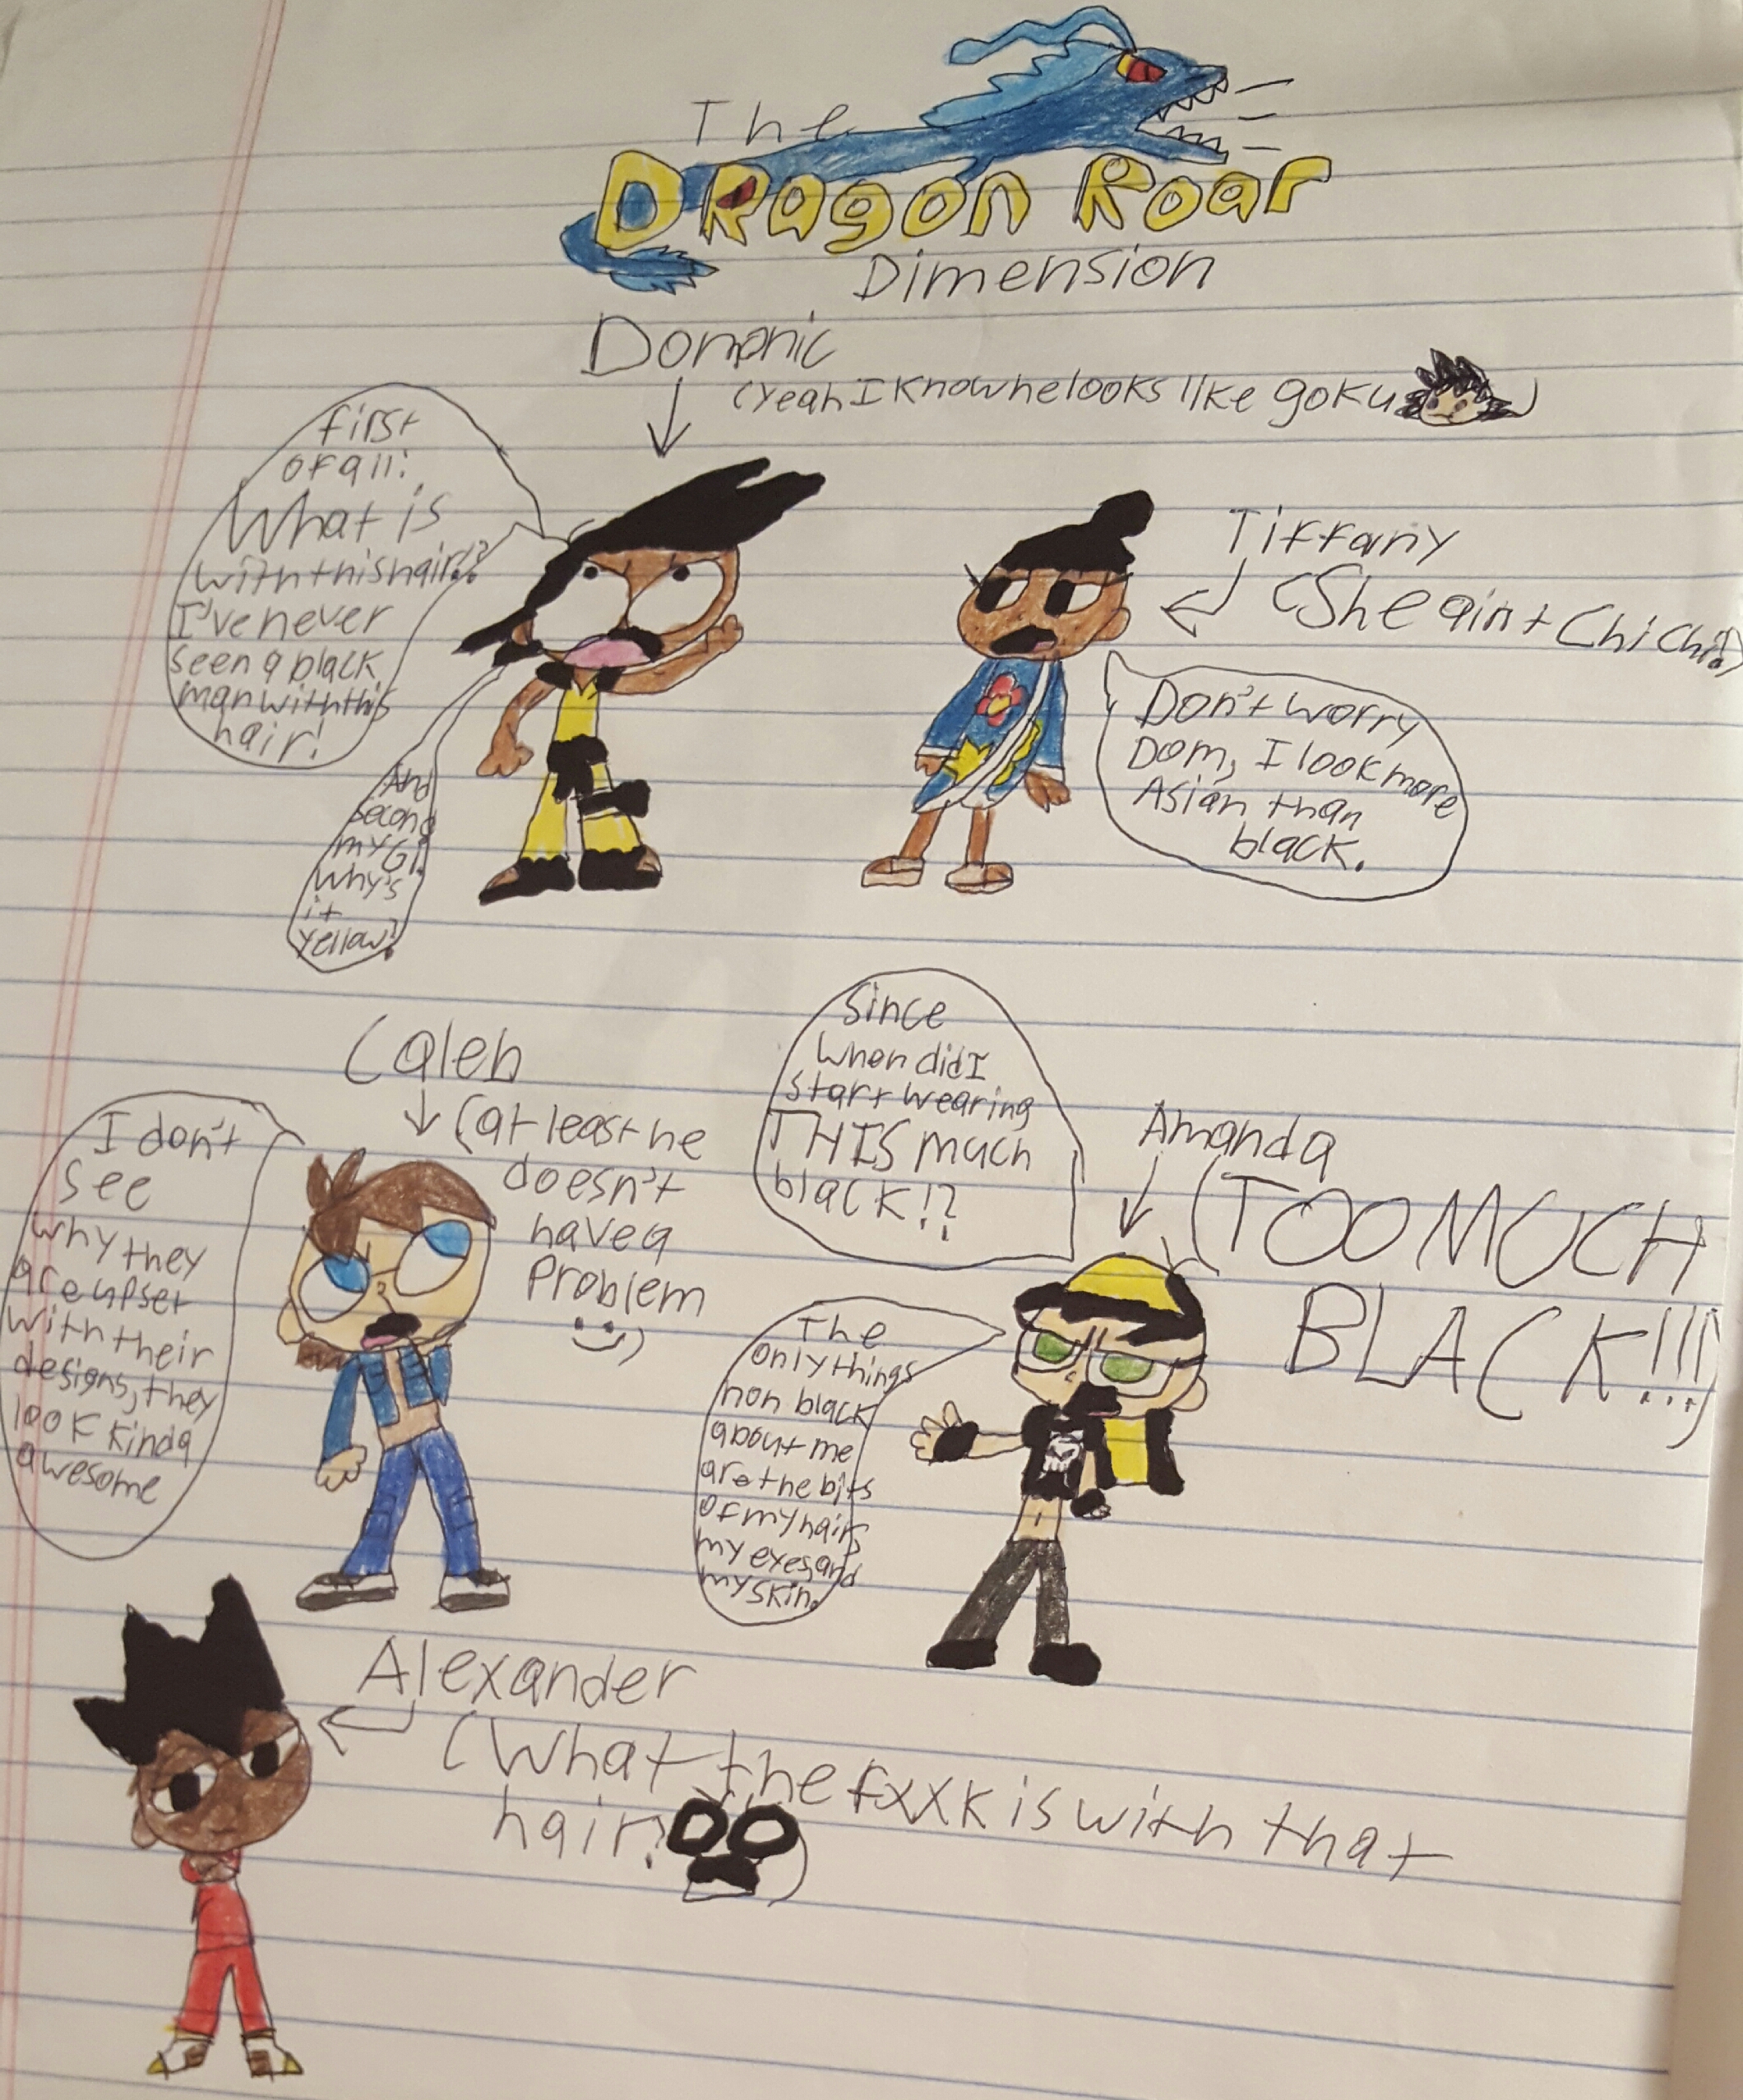 The
DRagon Roar
Dimension
Domonic
(Yeah I know he looks like goku )
first
of all:
What is
with this hair!?
I've never
seen a black
man with this
hair!
And
second
my Gi.
Why's
it
yellow?
Tiffany
(She ain't Chi Chi!)
Don't worry
Dom, I look more
Asian than
black.
Caleb
(at least he
doesn't
have a
problem
:))
I don't
see
why they
are upset
with their
designs, they
look kinda
awesome
Since
when did I
start wearing
THIS much
black!?
Amanda
(TOO MUCH
BLACK!!!)
The
only things
non black
about me
are the bits
of my hair,
my eyes, and
my skin.
Alexander
(What the fxxk is with that
hair? )